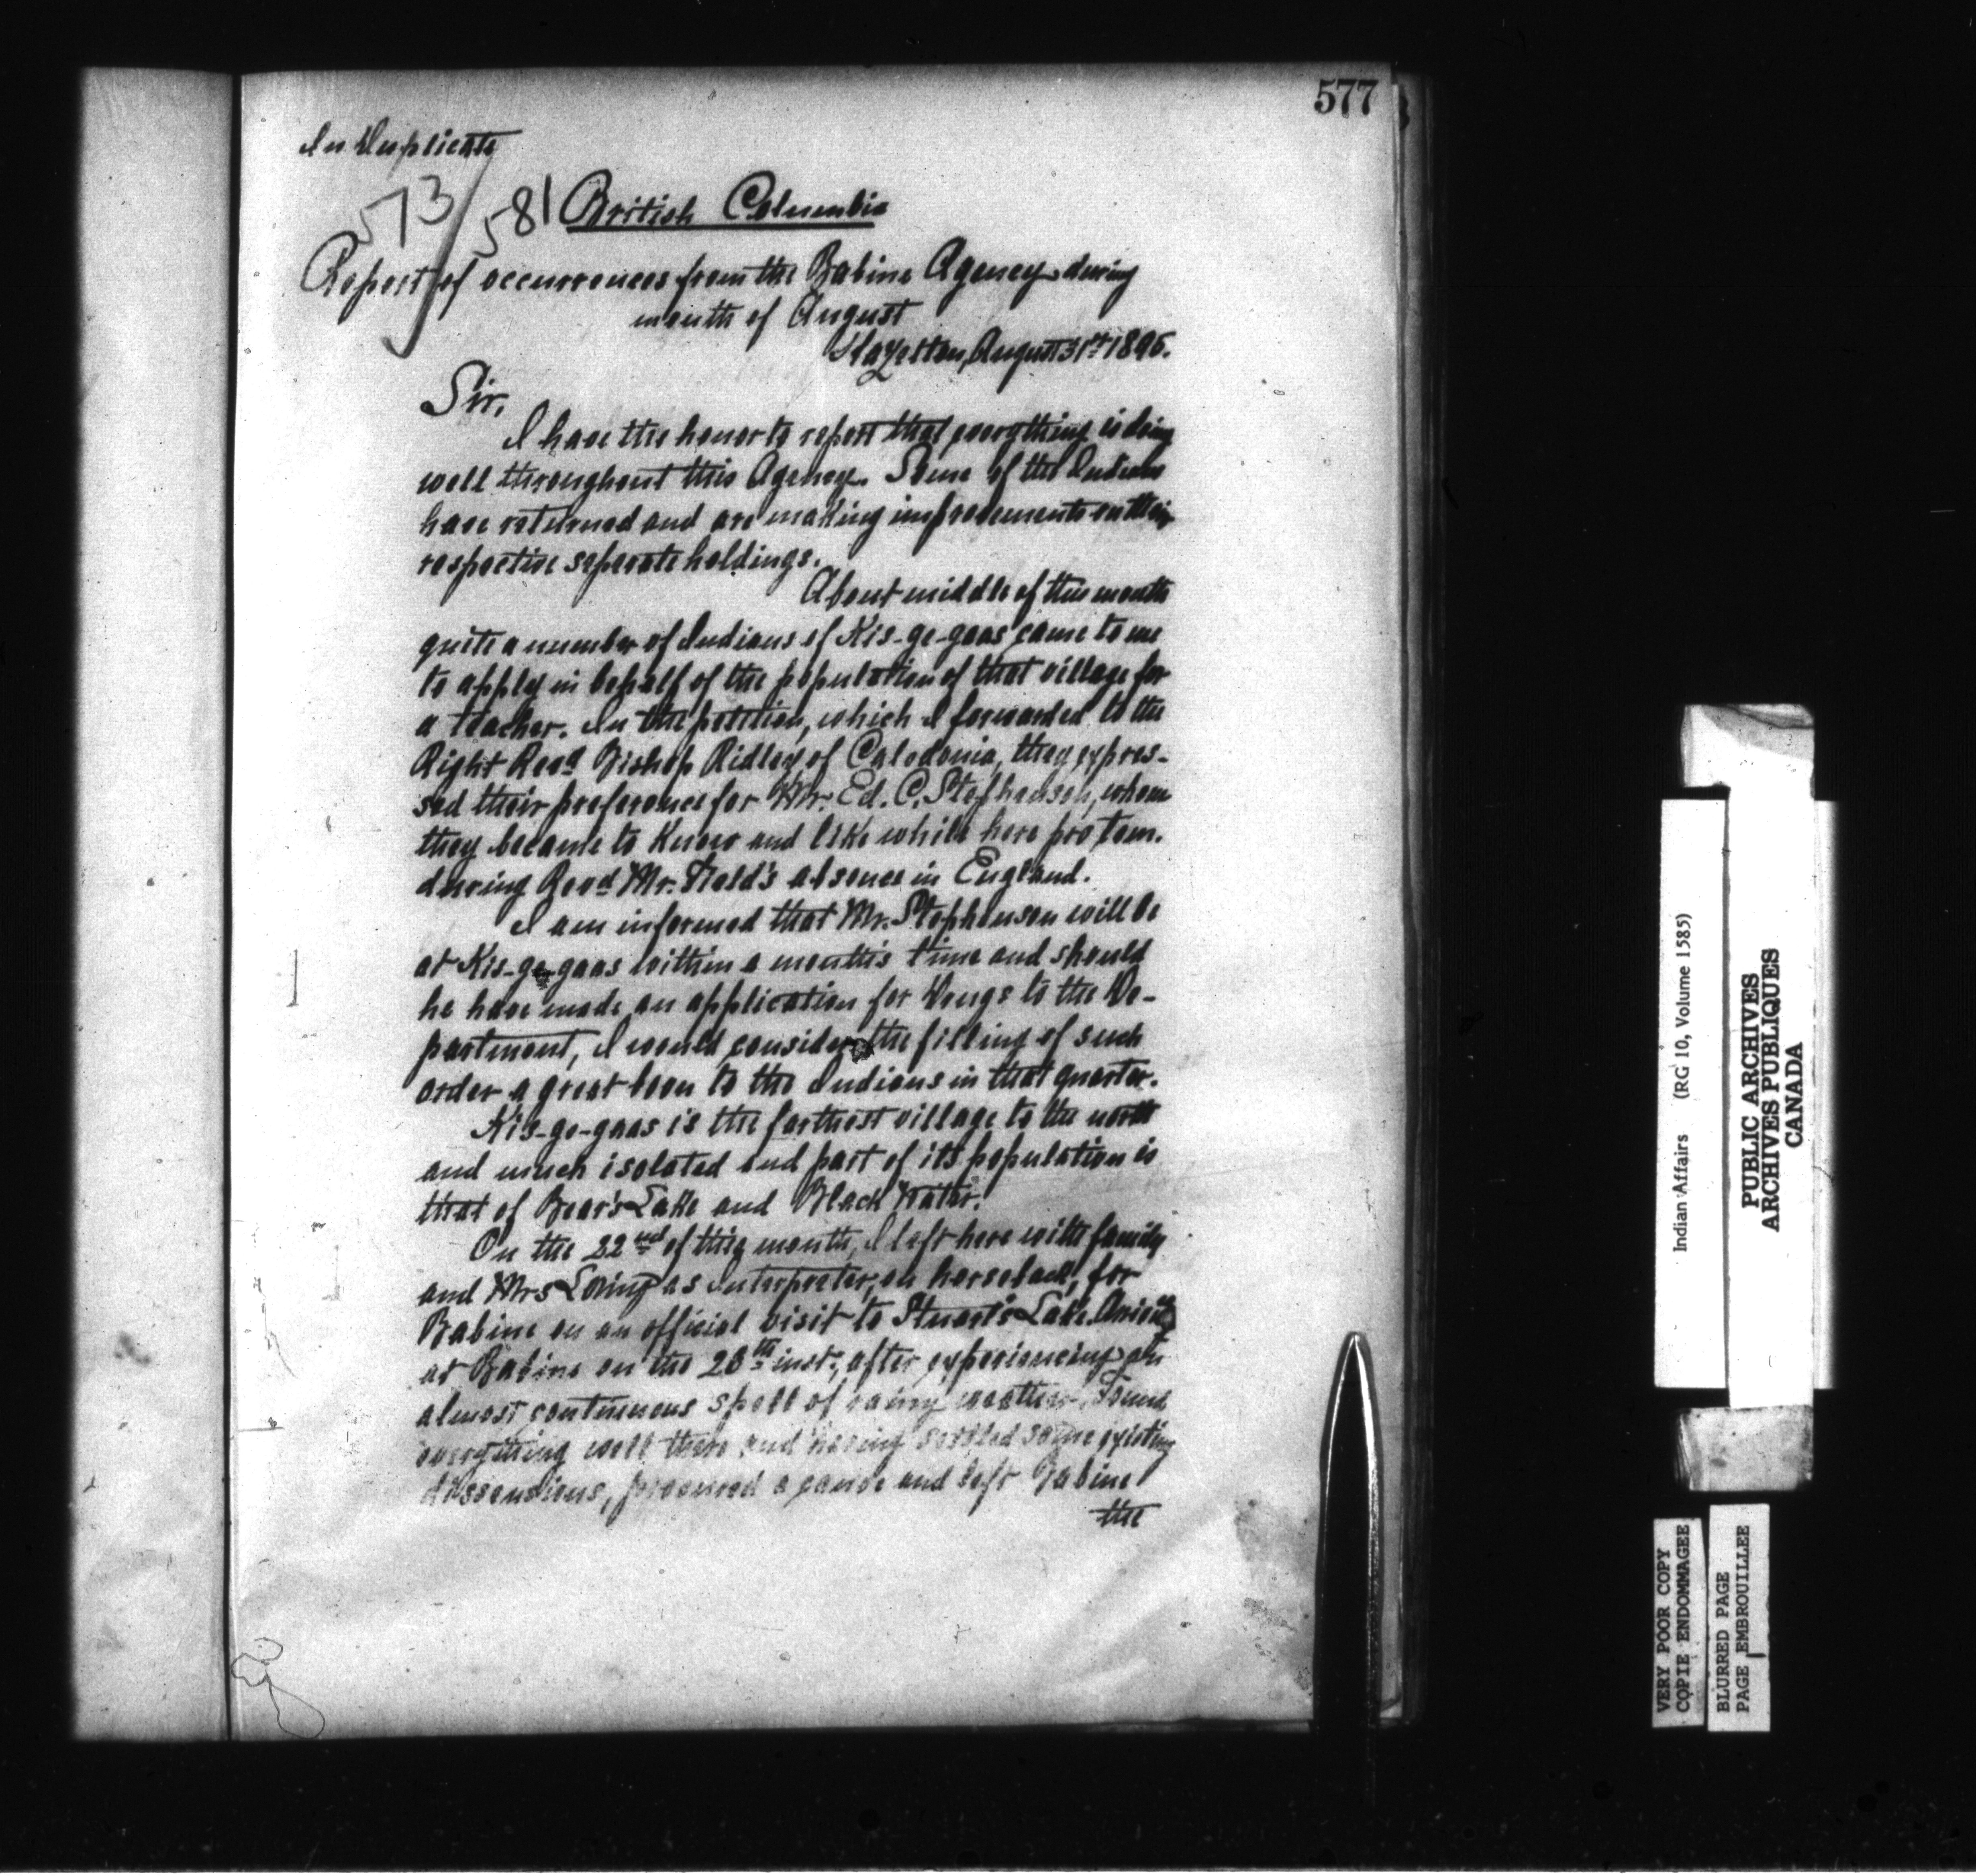 577
In Duplicate
573/581
British Columbia
Report of occurrences from the Babine Agency during
month of August
Hazelton, August 31st 1896.
Sir,
I have the honor to report that everything is doing
well throughout this Agency. Some of the Indians
have returned and are making improvements on their
respective separate holdings.
About middle of this month
quite a number of Indians of Kis-ge-gaas came to me
to apply in behalf of the population of that village for
a teacher. In the petition, which I forwarded to the
Right Revd Bishop Ridley of Caledonia, they expres-
sed their preference for Mr. Ed. C. Stephenson, whom
they became to know and like while here pro tem.
during Revd Mr. Field's absence in England.
I am informed that Mr. Stephenson will be
at Kis-ge-gaas within a month's time and should
he have made an application for Drugs to the De-
partment, I would consider the filling of such
order a great boon to the Indians in that quarter.
Kis-ge-gaas is the farthest village to the north
and much isolated and part of its population is
that of Bear's Lake and Black Water.
On the 22nd of this month, I left here with family
and Mrs Loring as Interpreter, on horseback, for
Babine on an official visit to Stuart's Lake.
at Babine on the 26th inst; after experiencing an
almost continuous spell of rainy weather. Found
everything well there and having settled some existing
dissensions, procured a canoe and left Babine
the
Indian Affairs (RG 10, Volume 1585)
PUBLIC ARCHIVES
ARCHIVES PUBLIQUES
CANADA
VERY POOR COPY
COPIE ENDOMMAGEE
BLURRED PAGE
PAGE EMBROUILLEE